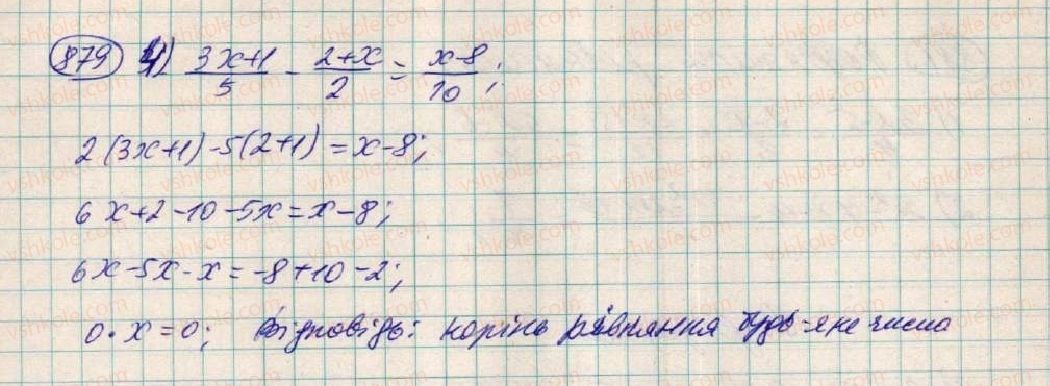 879 4) (3x+1)/5 - (2+x)/2 = (x-8)/10;
2(3x+1)-5(2+1)=x-8;
6x+2-10-5x=x-8;
6x-5x-x=-8+10-2;
0·x=0; Відповідь: корінь рівняння будь-яке число